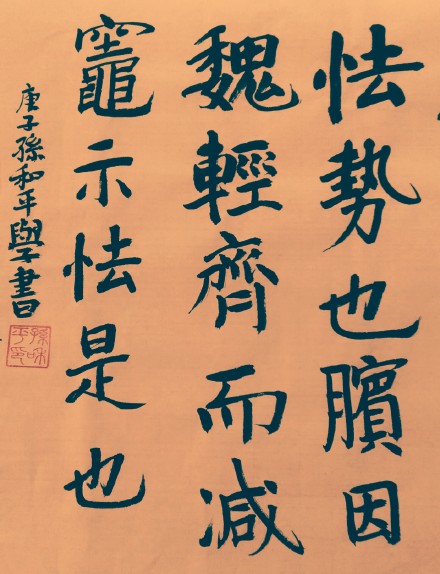 怯勢也臏因
魏輕齊而減
竈示怯是也
庚子孫和平學書
孫和平印